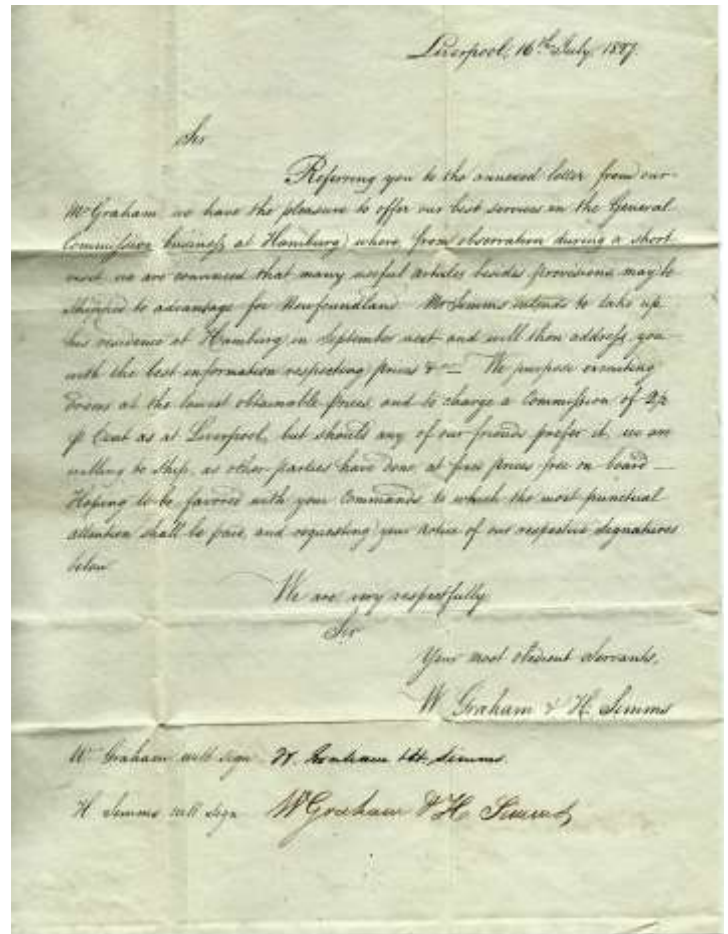 Liverpool, 16th July, 18
Sir
Referring you to the annexed letter from our
Mr Graham we have the pleasure to offer our best services in the General
Commission business at Hamburg, where, from observation during a short
visit we are convinced that many useful articles besides provisions may be
shipped to advantage for Newfoundland. Mr Simms intends to take up
his residence at Hamburg in September next and will then address you
with the best information respecting prices &c— We purpose executing
at the lowest obtainable prices and to charge a Commission of 2½
p Cent as at Liverpool, but should any of our friends prefer it, we are
willing to ship, as other parties have done, at prices free on board—
Hoping to be favored with your Commands to which the most punctual
attention shall be paid, and requesting your notice of our respective signatures
below
We are very respectfully
Sir
Your most obedient Servants,
W Graham & H. Simms
W Graham will sign W. Graham & H. Simms.
H Simms will sign W Graham & H Simms